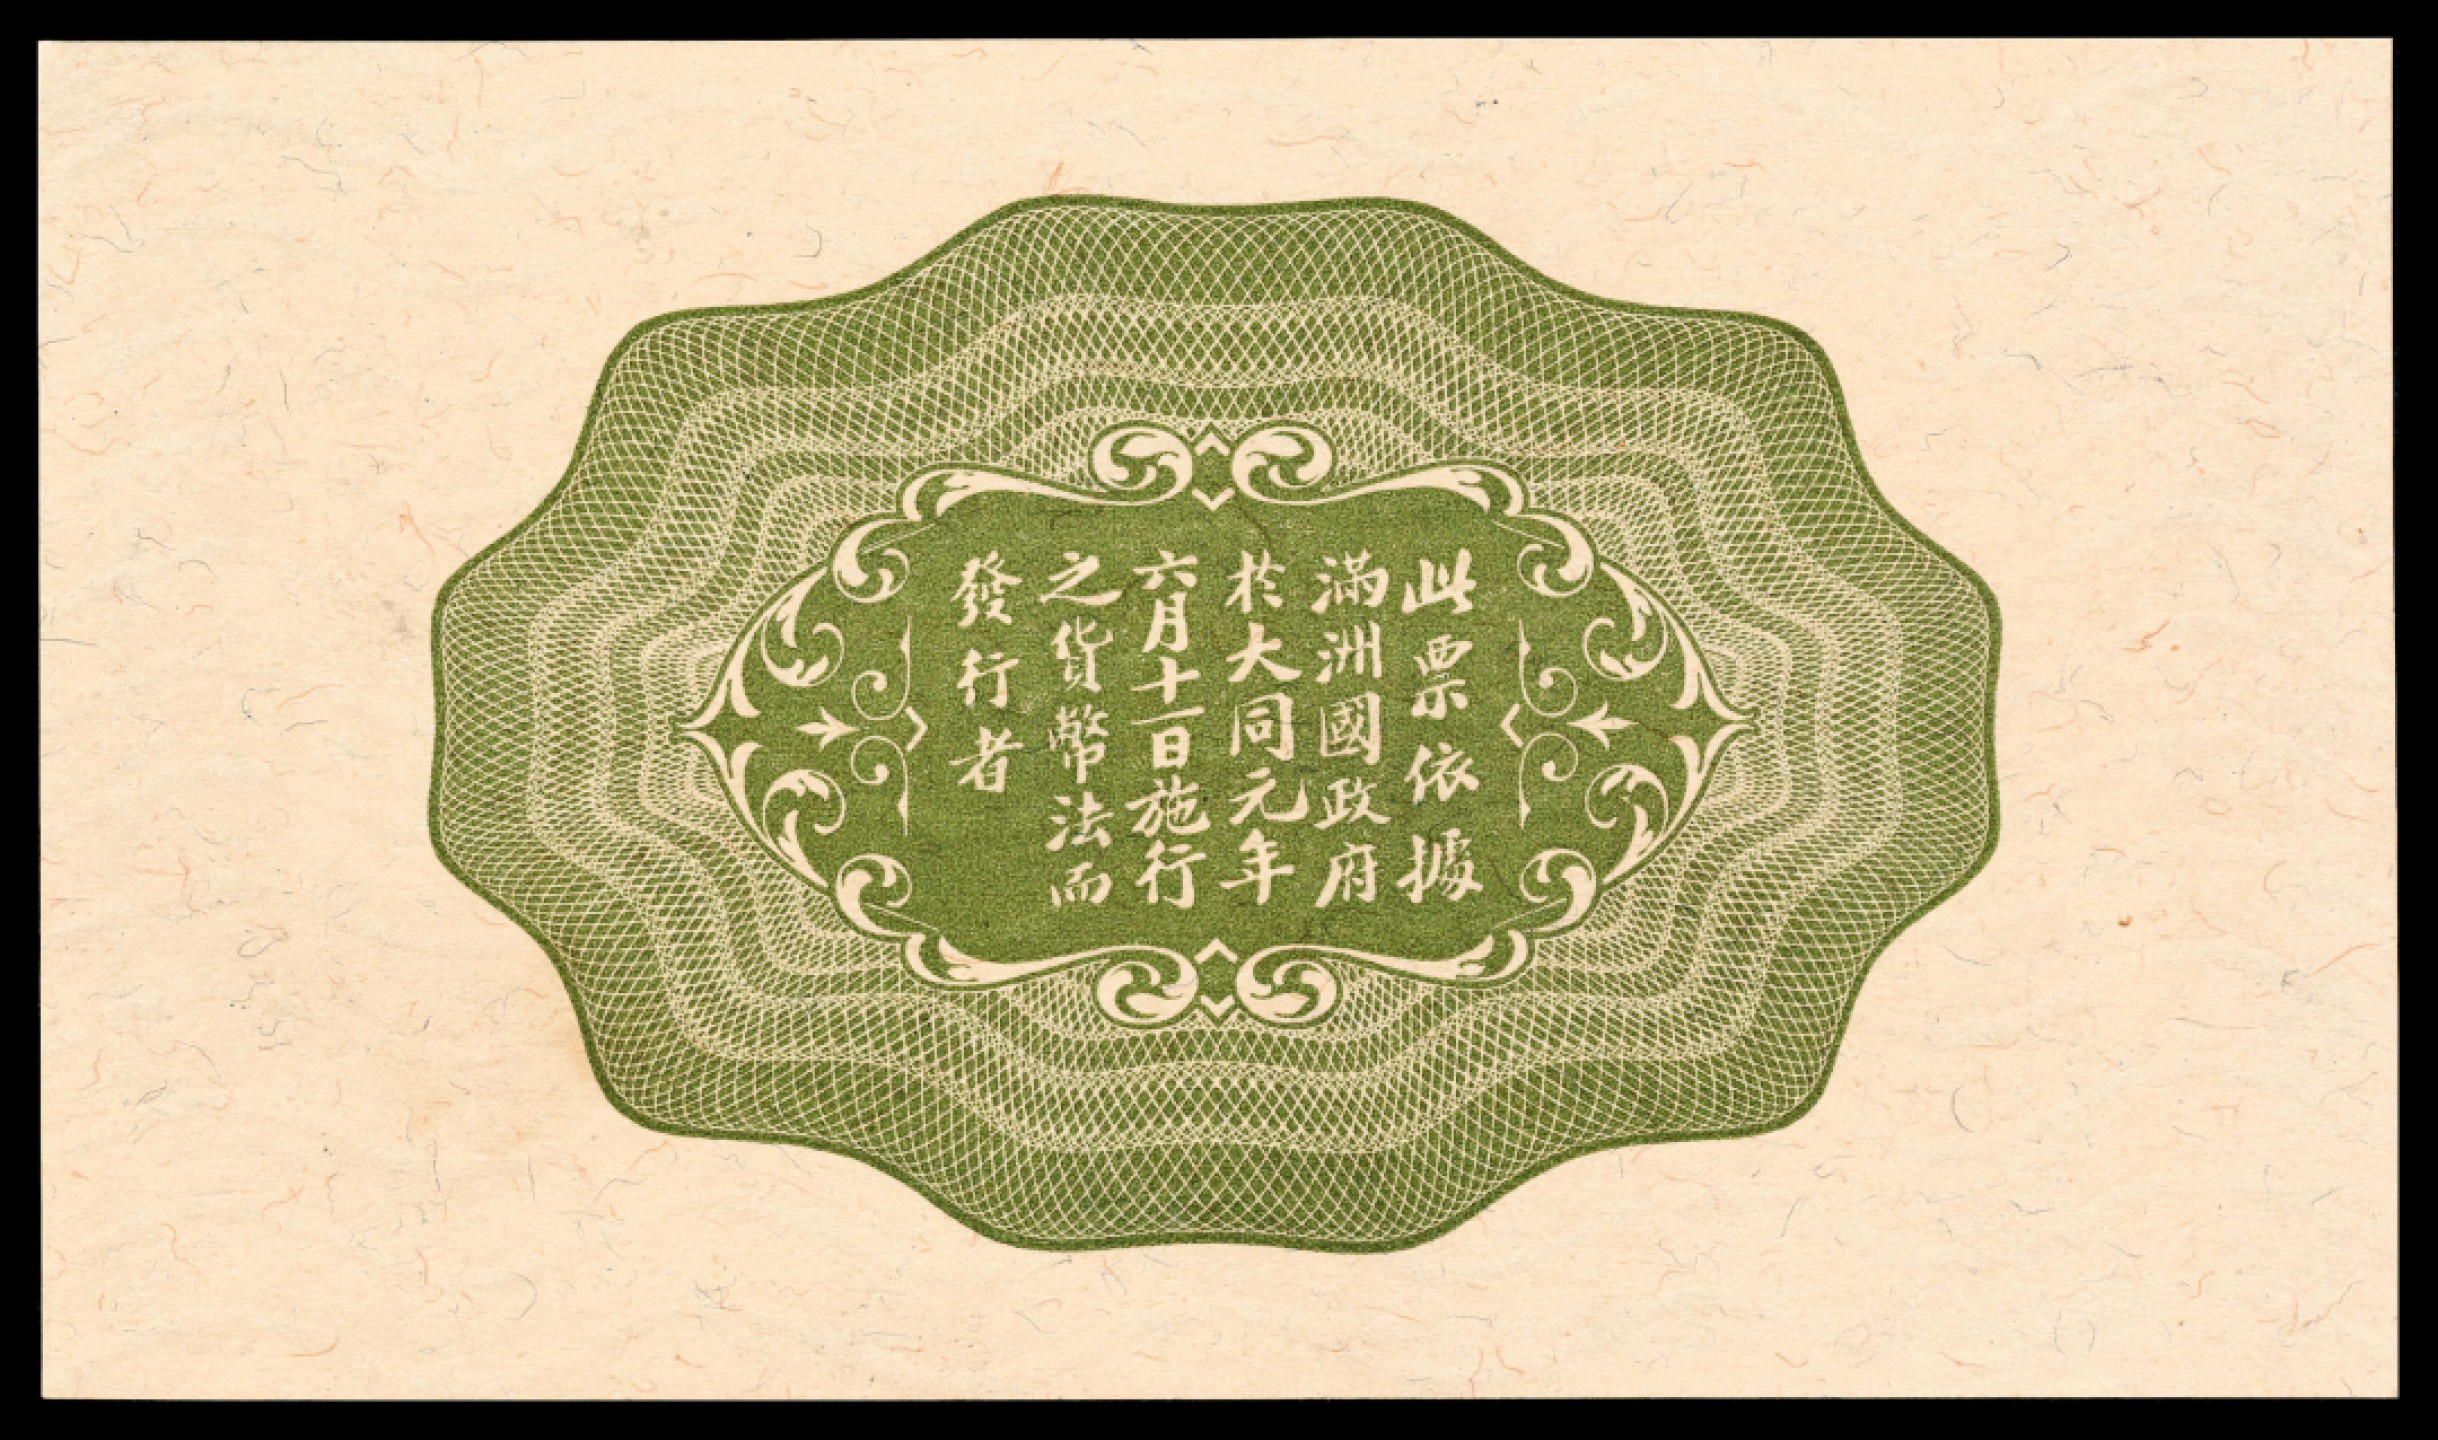 此票依據
滿洲國政府
於大同元年
六月十一日施行
之貨幣法而
發行者